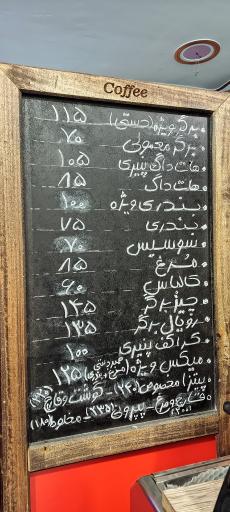 Coffee
برگر ویژه (دستی) ۱۱۵
برگر معمولی ۷۰
هات داگ پنیری ۱۰۵
هات داگ ۸۵
بندری ویژه ۱۰۰
بندری ۷۵
سوسیس ۷۰
مرغ ۸۵
کالباس ۹۰
چیز برگر ۱۴۵
رویال برگر ۱۳۵
کراکف پنیری ۱۰۰
میکس ویژه ۱۲۵
پیتزا مخصوص (۲۴۰) - گوشت و قارچ
قارچ و مرغ - پپرونی (۲۳۵) - مخلوط (۱۸۰)